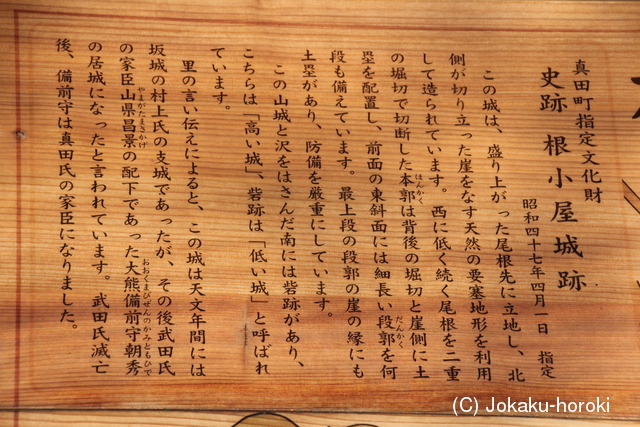 真田町指定文化財
史跡 根小屋城跡
昭和四十七年四月一日 指定
この城は、盛り上がった尾根先に立地し、北
側が切り立った崖をなす天然の要塞地形を利用
して造られています。西に低く続く尾根を二重
の堀切で切断した本郭は背後の堀切と崖側に土
ほんかく
塁を配置し、前面の東斜面には細長い段郭を何
だんかく
段も備えています。最上段の段郭の崖の縁にも
土塁があり、防備を厳重にしています。
この山城と沢をはさんだ南には砦跡があり、
こちらは「高い城」、砦跡は「低い城」と呼ばれ
ています。
里の言い伝えによると、この城は天文年間には
坂城の村上氏の支城であったが、その後武田氏
の家臣山県昌景の配下であった大熊備前守朝秀
やまがたまさかげ
おおくまびぜんのかみともひで
の居城になったと言われています。武田氏滅亡
後、備前守は真田氏の家臣になりました。
(C) Jokaku-horoki